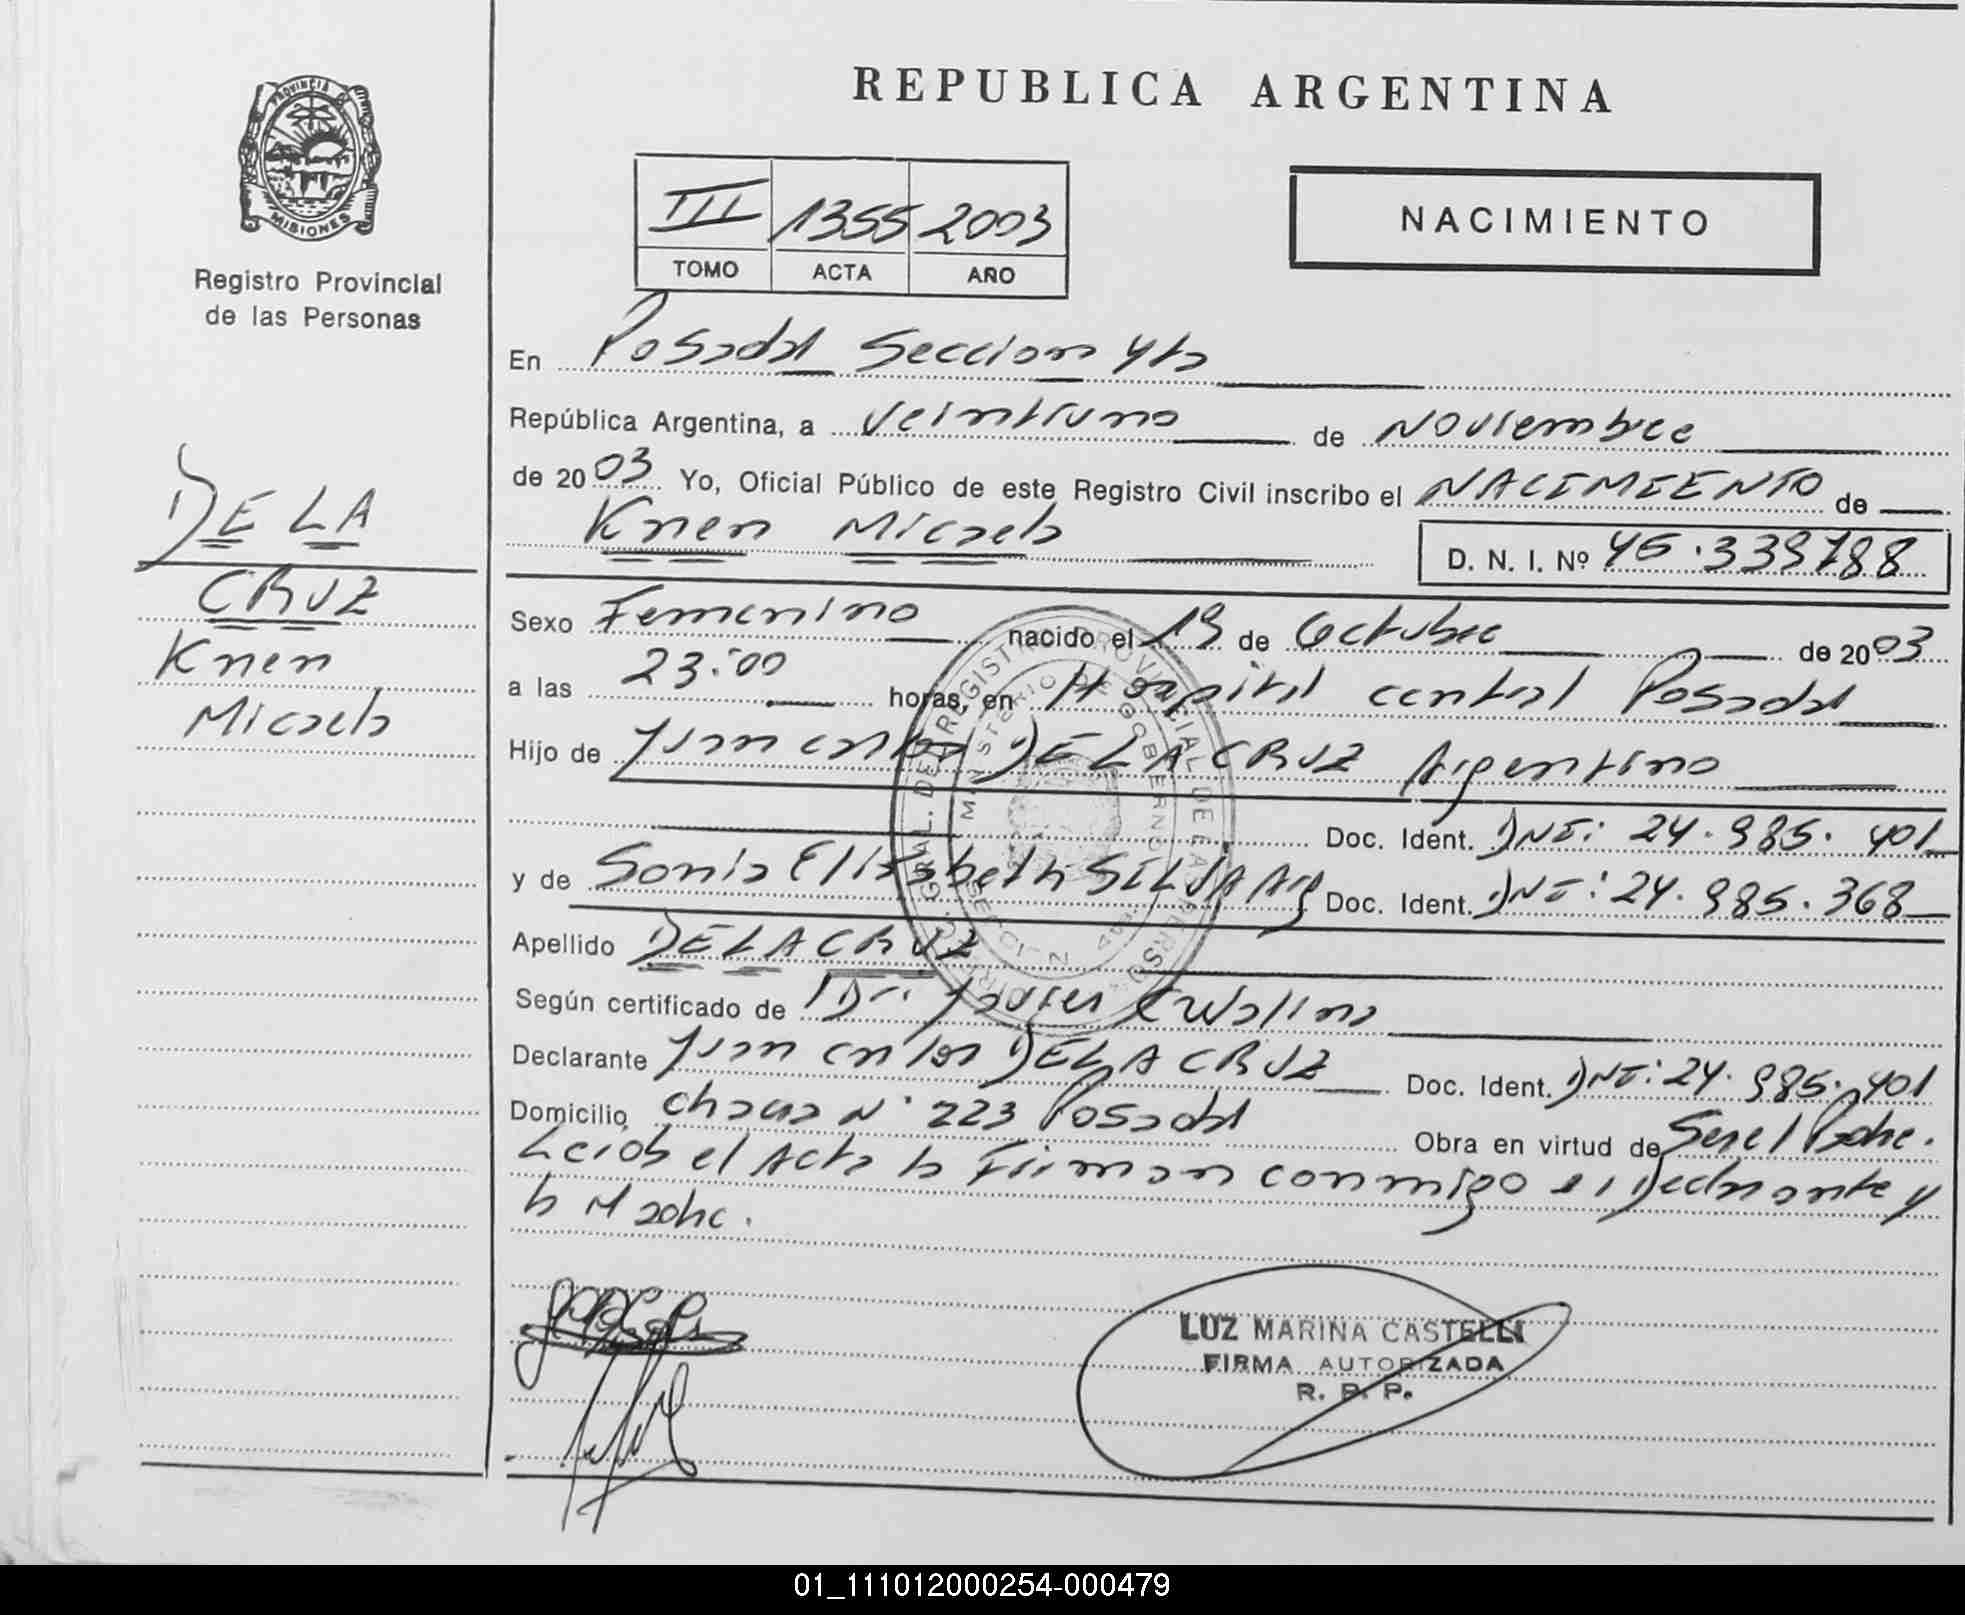 REPUBLICA ARGENTINA
PROVINCIA DE
MISIONES
Registro Provincial
de las Personas
III 1355 2003
TOMO ACTA AÑO
NACIMIENTO
En Posadas Seccion 4ta
República Argentina, a Veintiuno de Noviembre
de 2003 Yo, Oficial Público de este Registro Civil inscribo el NACIMIENTO de
Karen Micaela D. N. I. Nº 45.339788
DE LA
CRUZ
Karen
Micaela
Sexo Femenino nacido el 19 de Octubre de 2003
a las 23:00 horas, en Hospital central Posadas
Hijo de Juan carlos DE LA CRUZ Argentino
Doc. Ident. DNI: 24.985.401
y de Sonia Elisabeth SILVA Arg Doc. Ident. DNI: 24.985.368
Apellido DE LA CRUZ
Según certificado de Dr. Javier
Declarante Juan carlos DE LA CRUZ Doc. Ident. DNI: 24.985.401
Domicilio chacra Nº 223 Posadas Obra en virtud de Ser el Padre.
Leida el Acta la Firman conmigo el Declarante y
la Madre.
LUZ MARINA CASTELLI
FIRMA AUTORIZADA
R. P. P.
01_111012000254-000479